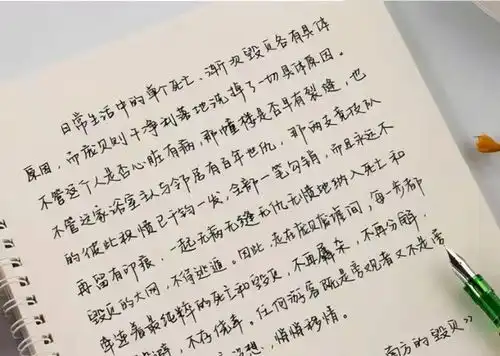 日常生活中的单个死亡、渐次毁灭各有具体
原因，而庞贝则干净利落地洗掉了一切具体原因。
不管这个人是否心脏有病，那幢楼是否早有裂缝，也
不管这家浴室主人与邻居有百年世仇，那两支竞技队
的彼此积愤已千钧一发，全部一笔勾销，而且永远不
再留有印痕，一起无病无缝无仇无愤地纳入死亡和
毁灭的大网，不得逃遁。因此，走在庞贝废墟间，每一步都
牵连着最纯粹的死亡和毁灭，不再羼杂，不再分解，
不存侥幸。任何游客既是旁观者又不是旁
想，悄悄移情。
南方的毁灭》